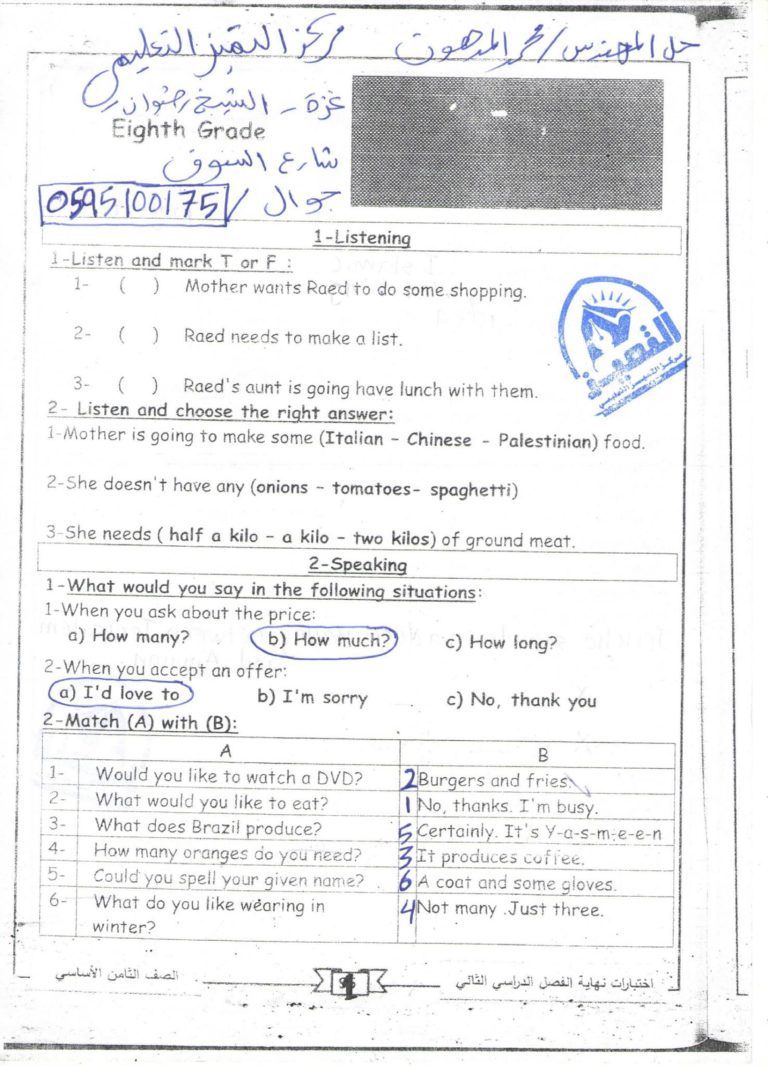 حل المهندس / محمد المدهون مركز التميز التعليمي
غزة - الشيخ رضوان
Eighth Grade
شارع السوق
جوال / 0595100175
1-Listening
1-Listen and mark T or F :
1- ( ) Mother wants Raed to do some shopping.
2- ( ) Raed needs to make a list.
3- ( ) Raed's aunt is going have lunch with them.
2- Listen and choose the right answer:
1-Mother is going to make some (Italian - Chinese - Palestinian) food.
2-She doesn't have any (onions - tomatoes- spaghetti)
3-She needs ( half a kilo - a kilo - two kilos) of ground meat.
2-Speaking
1-What would you say in the following situations:
1-When you ask about the price:
a) How many? b) How much? c) How long?
2-When you accept an offer:
a) I'd love to b) I'm sorry c) No, thank you
2-Match (A) with (B):
A B
1- Would you like to watch a DVD? 2 Burgers and fries.
2- What would you like to eat? 1 No, thanks. I'm busy.
3- What does Brazil produce? 5 Certainly. It's Y-a-s-m-e-e-n
4- How many oranges do you need? 3 It produces coffee.
5- Could you spell your given name? 6 A coat and some gloves.
6- What do you like wearing in 4 Not many .Just three.
winter?
الصف الثامن الأساسي 1 اختبارات نهاية الفصل الدراسي الثاني